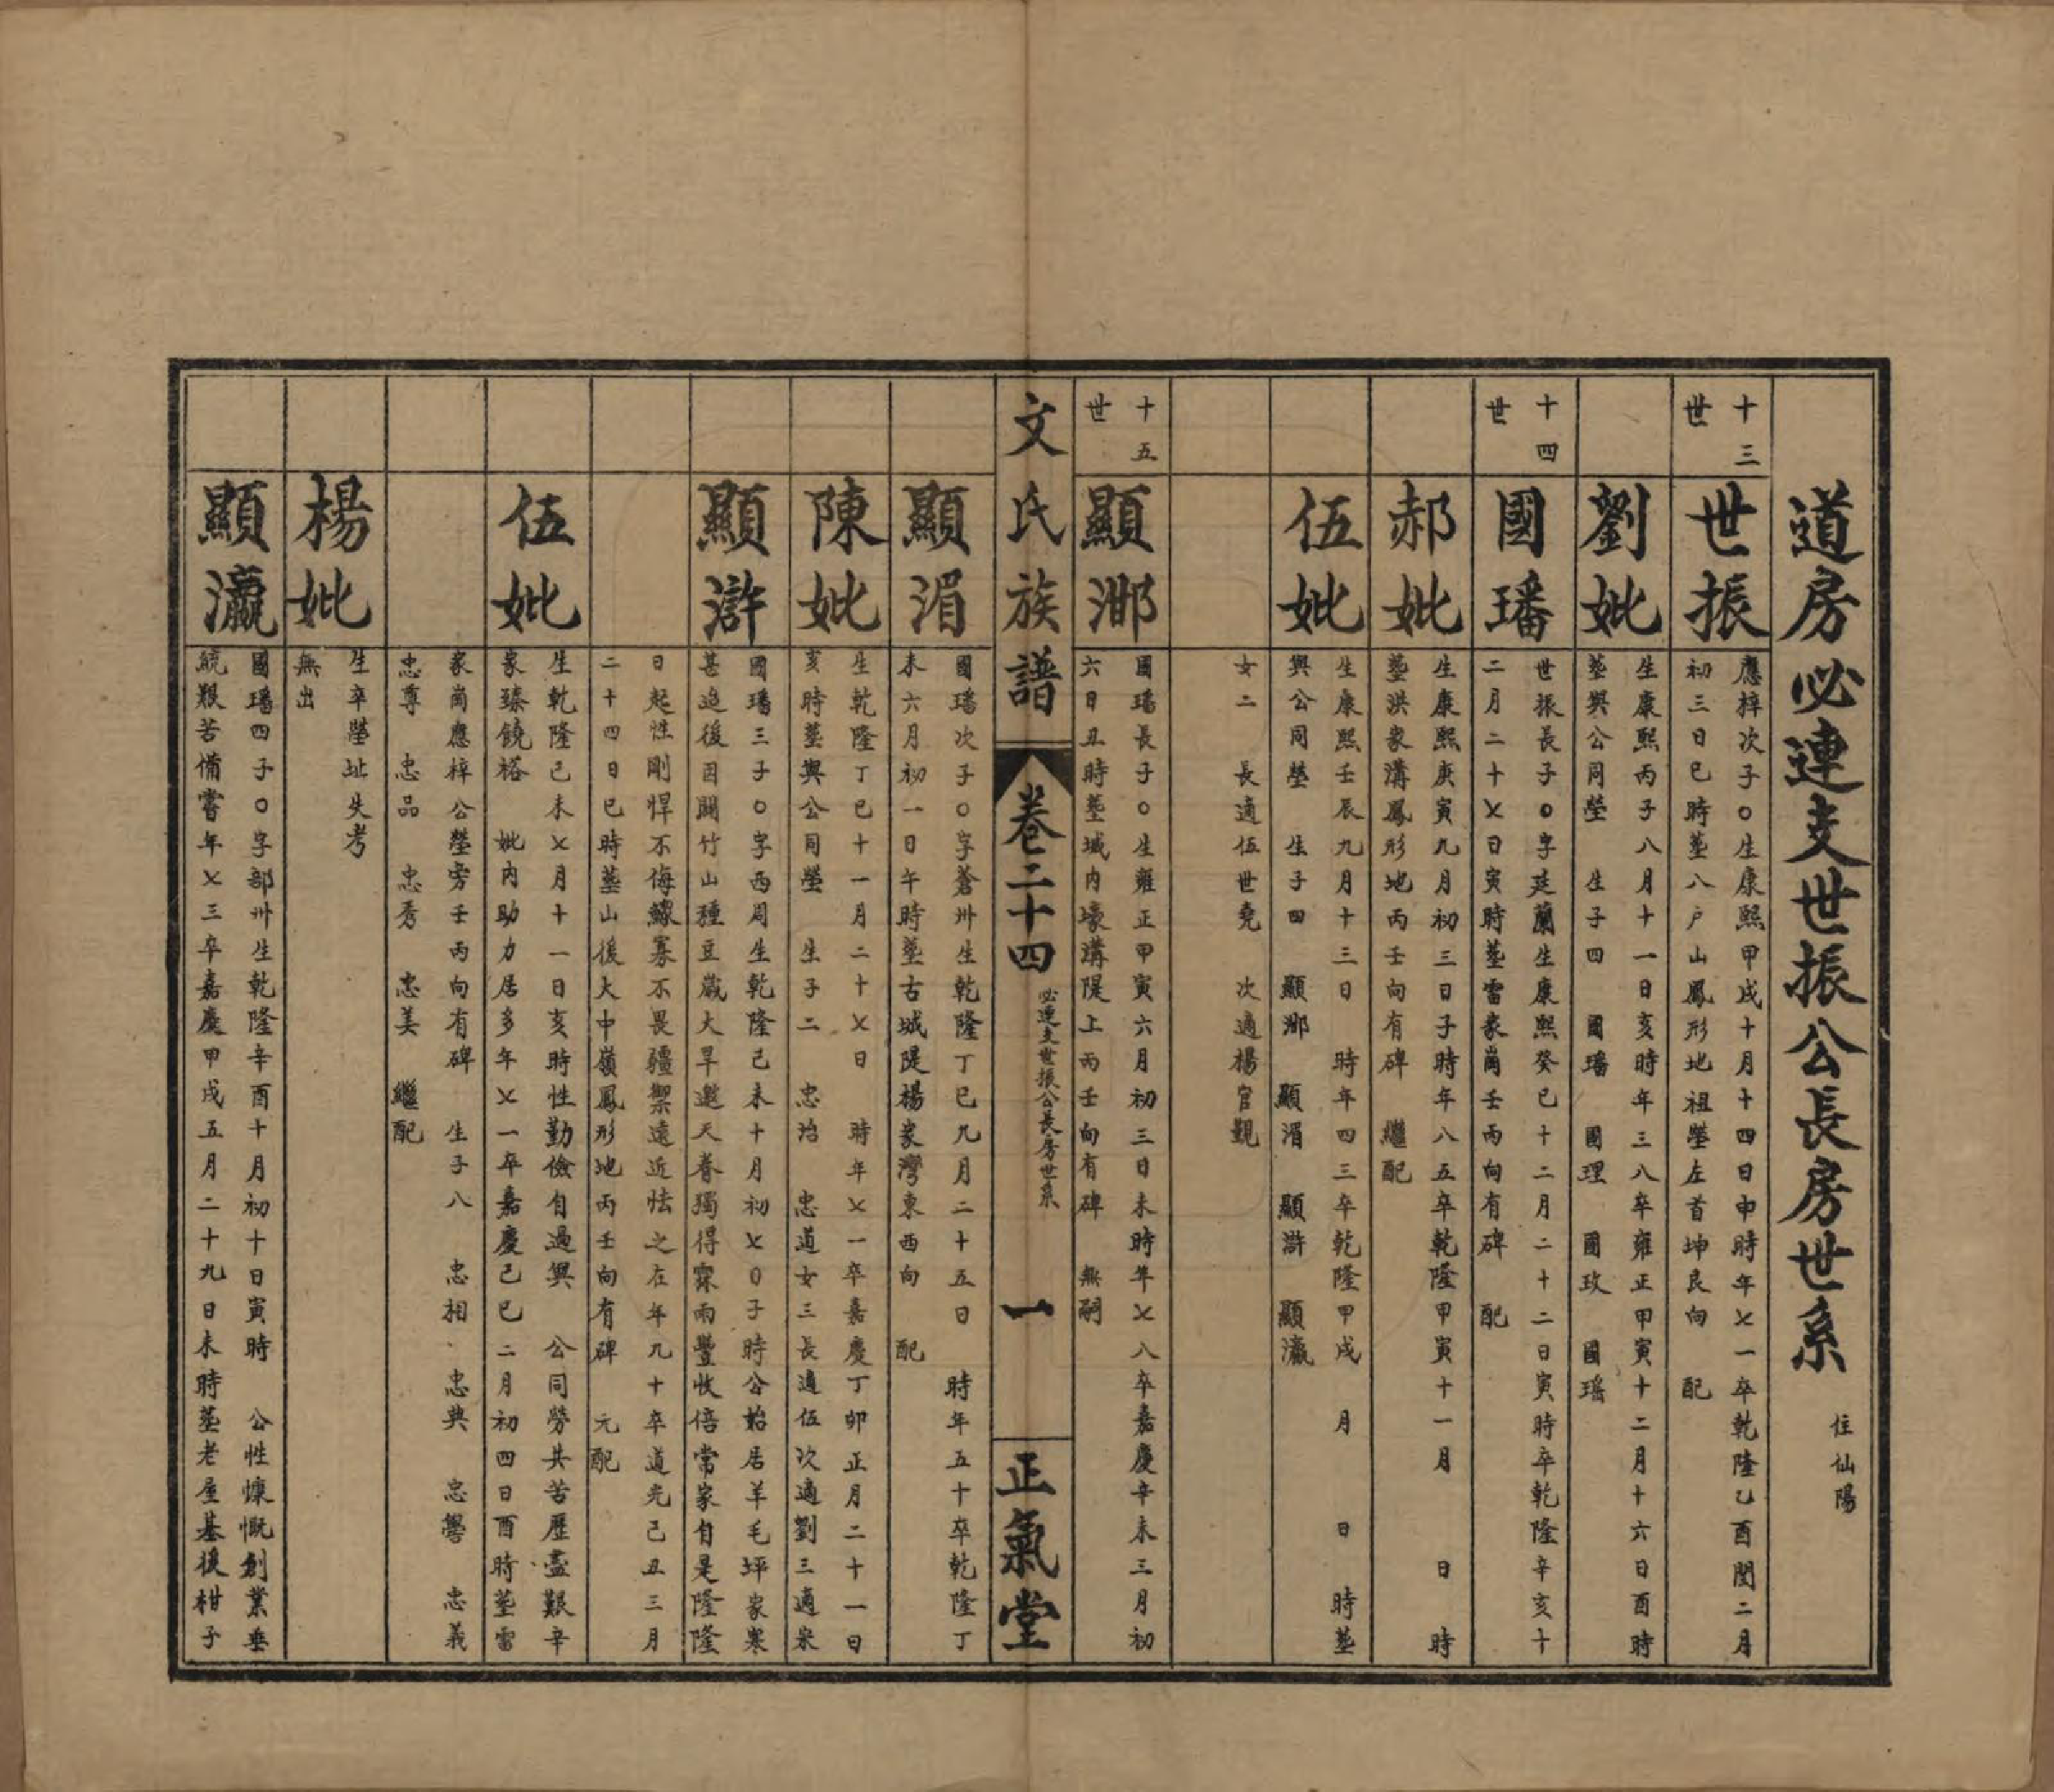 道房必連支世振公長房世系 住仙陽
十三世
世振
應梓次子○生康熙甲戌十月十四日申時年七一卒乾隆乙酉閏二月
初三日巳時塟八户山鳳形地祖塋左首坤艮向 配
劉妣
生康熙丙子八月十一日亥時年三八卒雍正甲寅十二月十六日酉時
塟與公同塋 生子四 國璠 國理 國玫 國瑤
十四世
國璠
世振長子○字廷蘭生康熙癸巳十二月二十二日寅時卒乾隆辛亥十
二月二十七日寅時塟雷家崗壬丙向有碑 配
郝妣
生康熙庚寅九月初三日子時年八五卒乾隆甲寅十一月 日 時
塟洪家溝鳳形地丙壬向有碑 繼配
伍妣
生康熙壬辰九月十三日 時年四三卒乾隆甲戌 月 日 時塟
與公同塋 生子四 顯鄉 顯湄 顯滸 顯瀛
女二 長適伍世堯 次適楊官觀
十五世
顯鄉
國璠長子○生雍正甲寅六月初三日未時年七八卒嘉慶辛未三月初
六日丑時塟城内壕溝隄上丙壬向有碑 無嗣
文氏族譜 卷二十四 必連支世振公長房世系 一 正氣堂
顯湄
國璠次子○字蒼州生乾隆丁巳九月二十五日 時年五十卒乾隆丁
未六月初一日午時塟古城隄楊家灣東西向 配
陳妣
生乾隆丁巳十一月二十七日 時年七一卒嘉慶丁卯正月二十一日
亥時塟與公同塋 生子二 忠治 忠道女三長適伍次適劉三適米
顯滸
國璠三子○字西周生乾隆己未十月初七日子時公始居羊毛坪家寒
甚迨後因闢竹山種豆歲大旱邀天眷獨得霖雨豐收倍常家自是隆隆
日起性剛悍不侮鰥寡不畏疆禦遠近怯之在年九十卒道光己丑三月
二十四日巳時塟山後大中嶺鳳形地丙壬向有碑 元配
伍妣
生乾隆己未七月十一日亥時性勤儉自過興 公同勞共苦歷盡艱辛
家臻饒裕 妣内助力居多年七一卒嘉慶己巳二月初四日酉時塟雷
家崗應梓公塋旁壬丙向有碑 生子八 忠相 忠典 忠學 忠義
忠尊 忠品 忠秀 忠美 繼配
楊妣
生卒塋址失考
無出
顯瀛
國璠四子○字部州生乾隆辛酉十月初十日寅時 公性慷慨創業垂
統艱苦備嘗年七三卒嘉慶甲戌五月二十九日未時塟老屋基後柑子